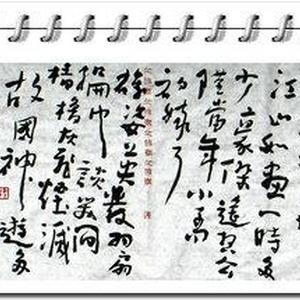 江山如畫一時多
少豪傑遙想公
瑾當年小喬
初嫁了
雄姿英發羽扇
綸巾談笑間
檣櫓灰飛煙滅
故國神遊多